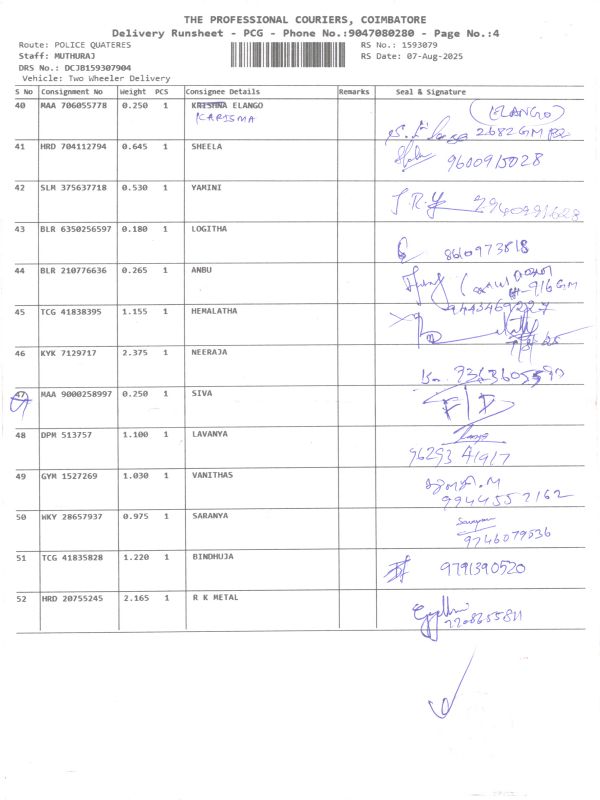 THE PROFESSIONAL COURIERS, COIMBATORE
Delivery Runsheet - PCG - Phone No.:9047080280 - Page No.:4
Route: POLICE QUATERES RS No.: 1593079
Staff: MUTHURAJ RS Date: 07-Aug-2025
DRS No.: DCJB159307904
Vehicle: Two Wheeler Delivery
S No Consignment No Weight PCS Consignee Details Remarks Seal & Signature
40 MAA 706055778 0.250 1 KRISHNA ELANGO (ELANGO)
KARISMA
41 HRD 704112794 0.645 1 SHEELA 9600915028
42 SLM 375637718 0.530 1 YAMINI J.R.Y
43 BLR 6350256597 0.180 1 LOGITHA 8610973818
44 BLR 210776636 0.265 1 ANBU
45 TCG 41838395 1.155 1 HEMALATHA
46 KYK 7129717 2.375 1 NEERAJA
47 MAA 9000258997 0.250 1 SIVA F/D
48 DPM 513757 1.100 1 LAVANYA
49 GYM 1527269 1.030 1 VANITHAS
9944557162
50 WKY 28657937 0.975 1 SARANYA
9746079536
51 TCG 41835828 1.220 1 BINDHUJA 9791390520
52 HRD 20755245 2.165 1 R K METAL